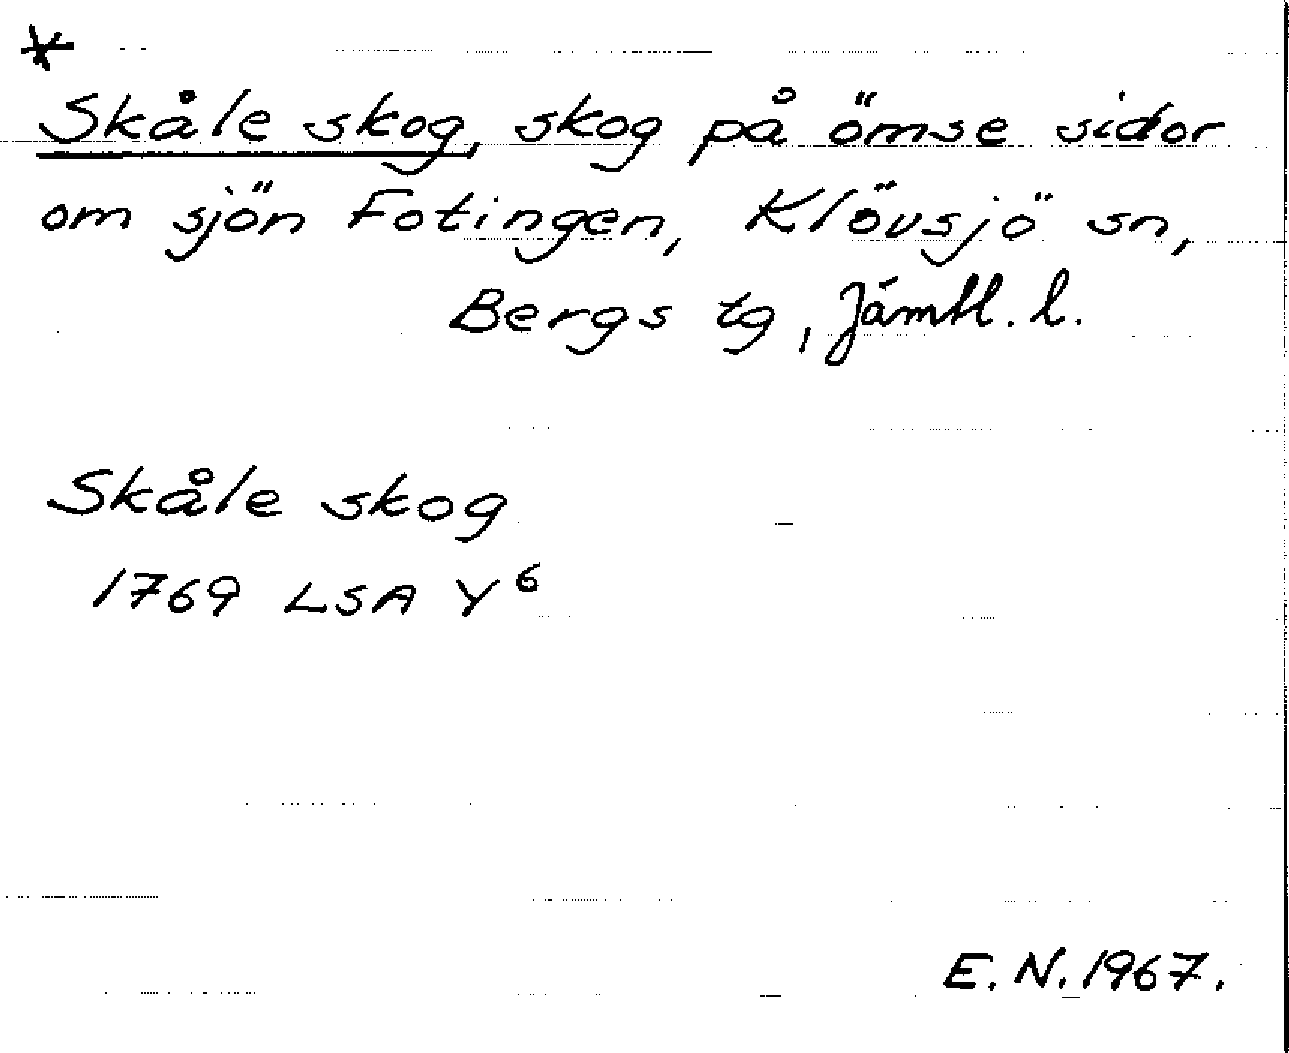 *
Skåle skog, skog på ömse sidor
om sjön Fotingen, Klövsjö sn,
Bergs tg, Jämtl. l.
Skåle skog
1769 LSA Y⁶
E. N. 1967.